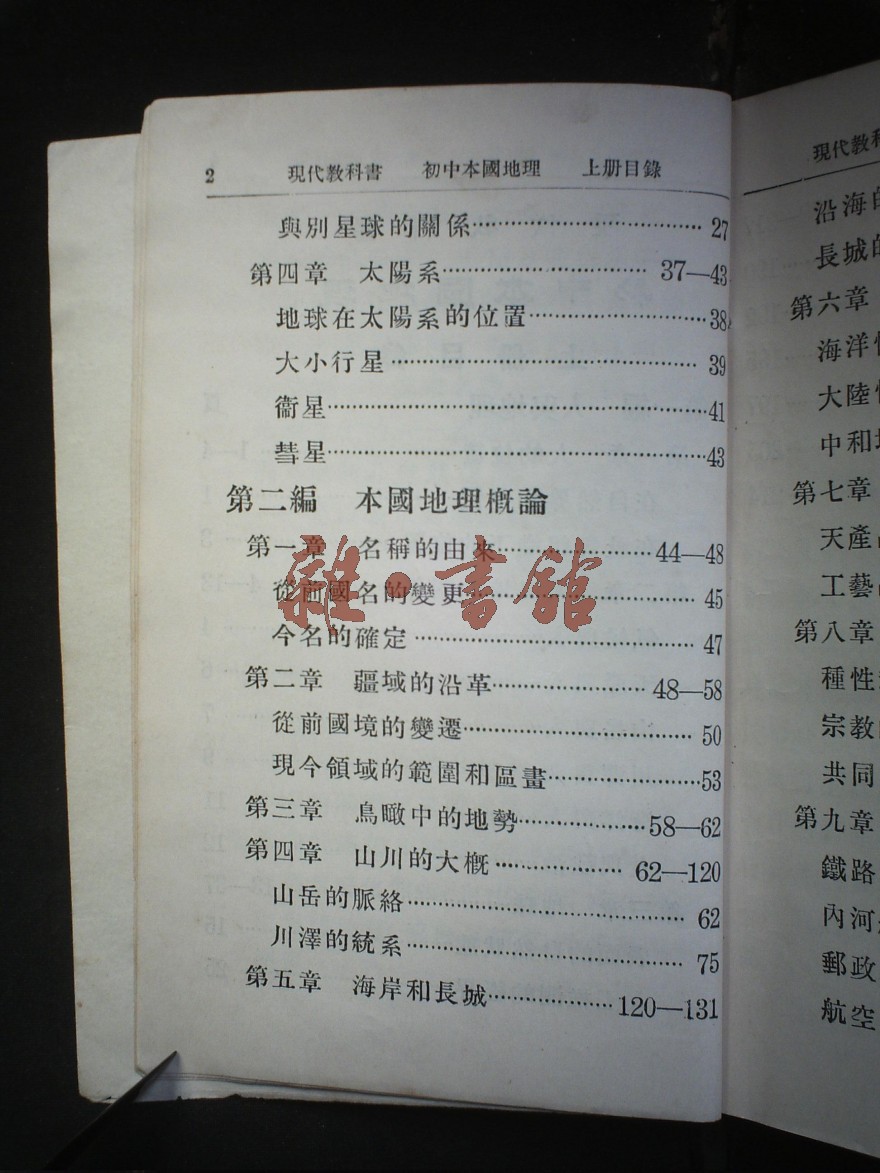 2 現代教科書 初中本國地理 上册目錄
與別星球的關係⋯⋯⋯⋯⋯⋯⋯⋯ 27
第四章 太陽系⋯⋯⋯⋯⋯⋯⋯⋯ 37—43
地球在太陽系的位置⋯⋯⋯⋯⋯⋯38
大小行星⋯⋯⋯⋯⋯⋯⋯⋯⋯⋯ 39
衞星⋯⋯⋯⋯⋯⋯⋯⋯⋯⋯⋯⋯41
彗星⋯⋯⋯⋯⋯⋯⋯⋯⋯⋯⋯⋯43
第二編 本國地理概論
第一章 名稱的由來⋯⋯⋯⋯⋯⋯44—48
從前國名的變更⋯⋯⋯⋯⋯⋯⋯ 45
今名的確定⋯⋯⋯⋯⋯⋯⋯⋯⋯ 47
第二章 疆域的沿革⋯⋯⋯⋯⋯⋯48—58
從前國境的變遷⋯⋯⋯⋯⋯⋯⋯ 50
現今領域的範圍和區畫⋯⋯⋯⋯⋯53
第三章 鳥瞰中的地勢⋯⋯⋯⋯⋯58—62
第四章 山川的大概⋯⋯⋯⋯⋯ 62—120
山岳的脈絡⋯⋯⋯⋯⋯⋯⋯⋯⋯ 62
川澤的統系⋯⋯⋯⋯⋯⋯⋯⋯⋯ 75
第五章 海岸和長城⋯⋯⋯⋯⋯120—131
雜·書館
現代教科
沿海的
長城的
第六章
海洋
大陸
中和
第七章
天產
工藝
第八章
種性
宗教
共同
第九章
鐵路
內河
郵政
航空